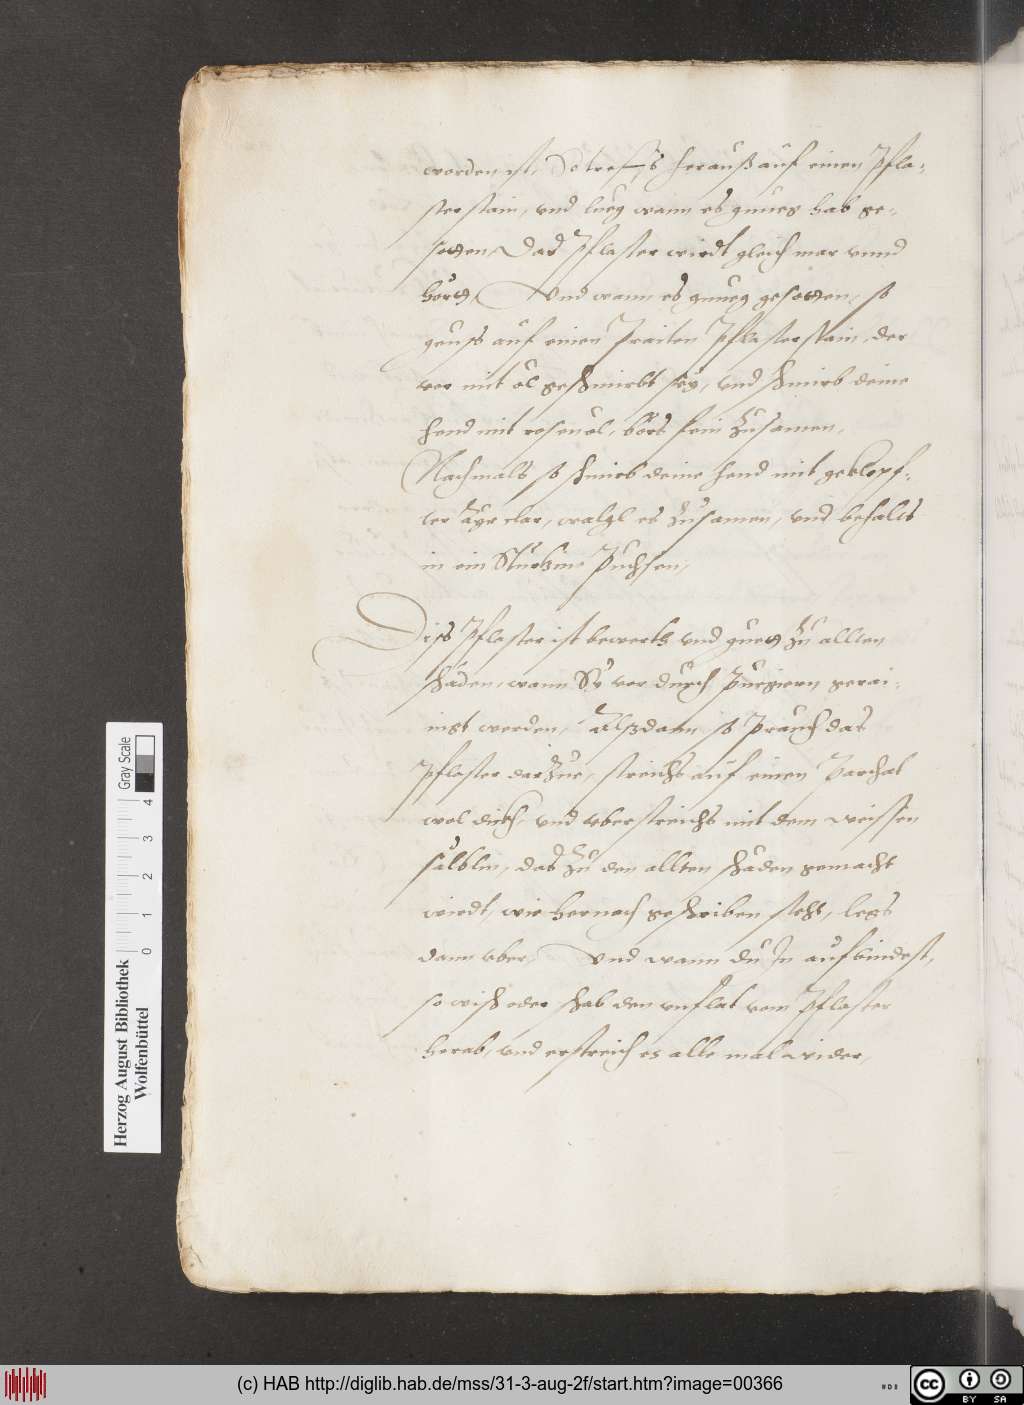 worden ist, So treifs herauß auf einen Pfla-
sterstain, und lueg wann es genueg hab ge-
sotten, Das Pflaster wirdt gleich mar unnd
hörtt, Und wann es genueg gesotten, so
geuss auf einen Praiten Pflasterstain, der
vor mit öl geschmirbt sey, und schmirb deine
hend mit rosenöl, börs fein zusamen,
Nachmals so schmirb deine hend mit geklopf-
ter ayr clar, walgl es zusamen, und behalts
in ein Püchsen,
Diss Pflaster ist bewerth und guett zu allten
schäden, wann Sy vor durch Purgiern gerai-
nigt werden, Alßdann so Prauch das
Pflaster darzue, streichs auf einen Parchat
wol dickh, und uberstreichs mit dem weissen
sälblin, das zu den allten schäden gemacht
wirdt, wie hernach geschriben steht, legs
dann uber, Und wann du In aufbindest,
so wisch oder schab den unflat vom Pflaster
herab, und erstreich es alle mal wider,
Herzog August Bibliothek
Wolfenbüttel
0 1 2 3 4
Gray Scale
(c) HAB http://diglib.hab.de/mss/31-3-aug-2f/start.htm?image=00366
cc
BY SA